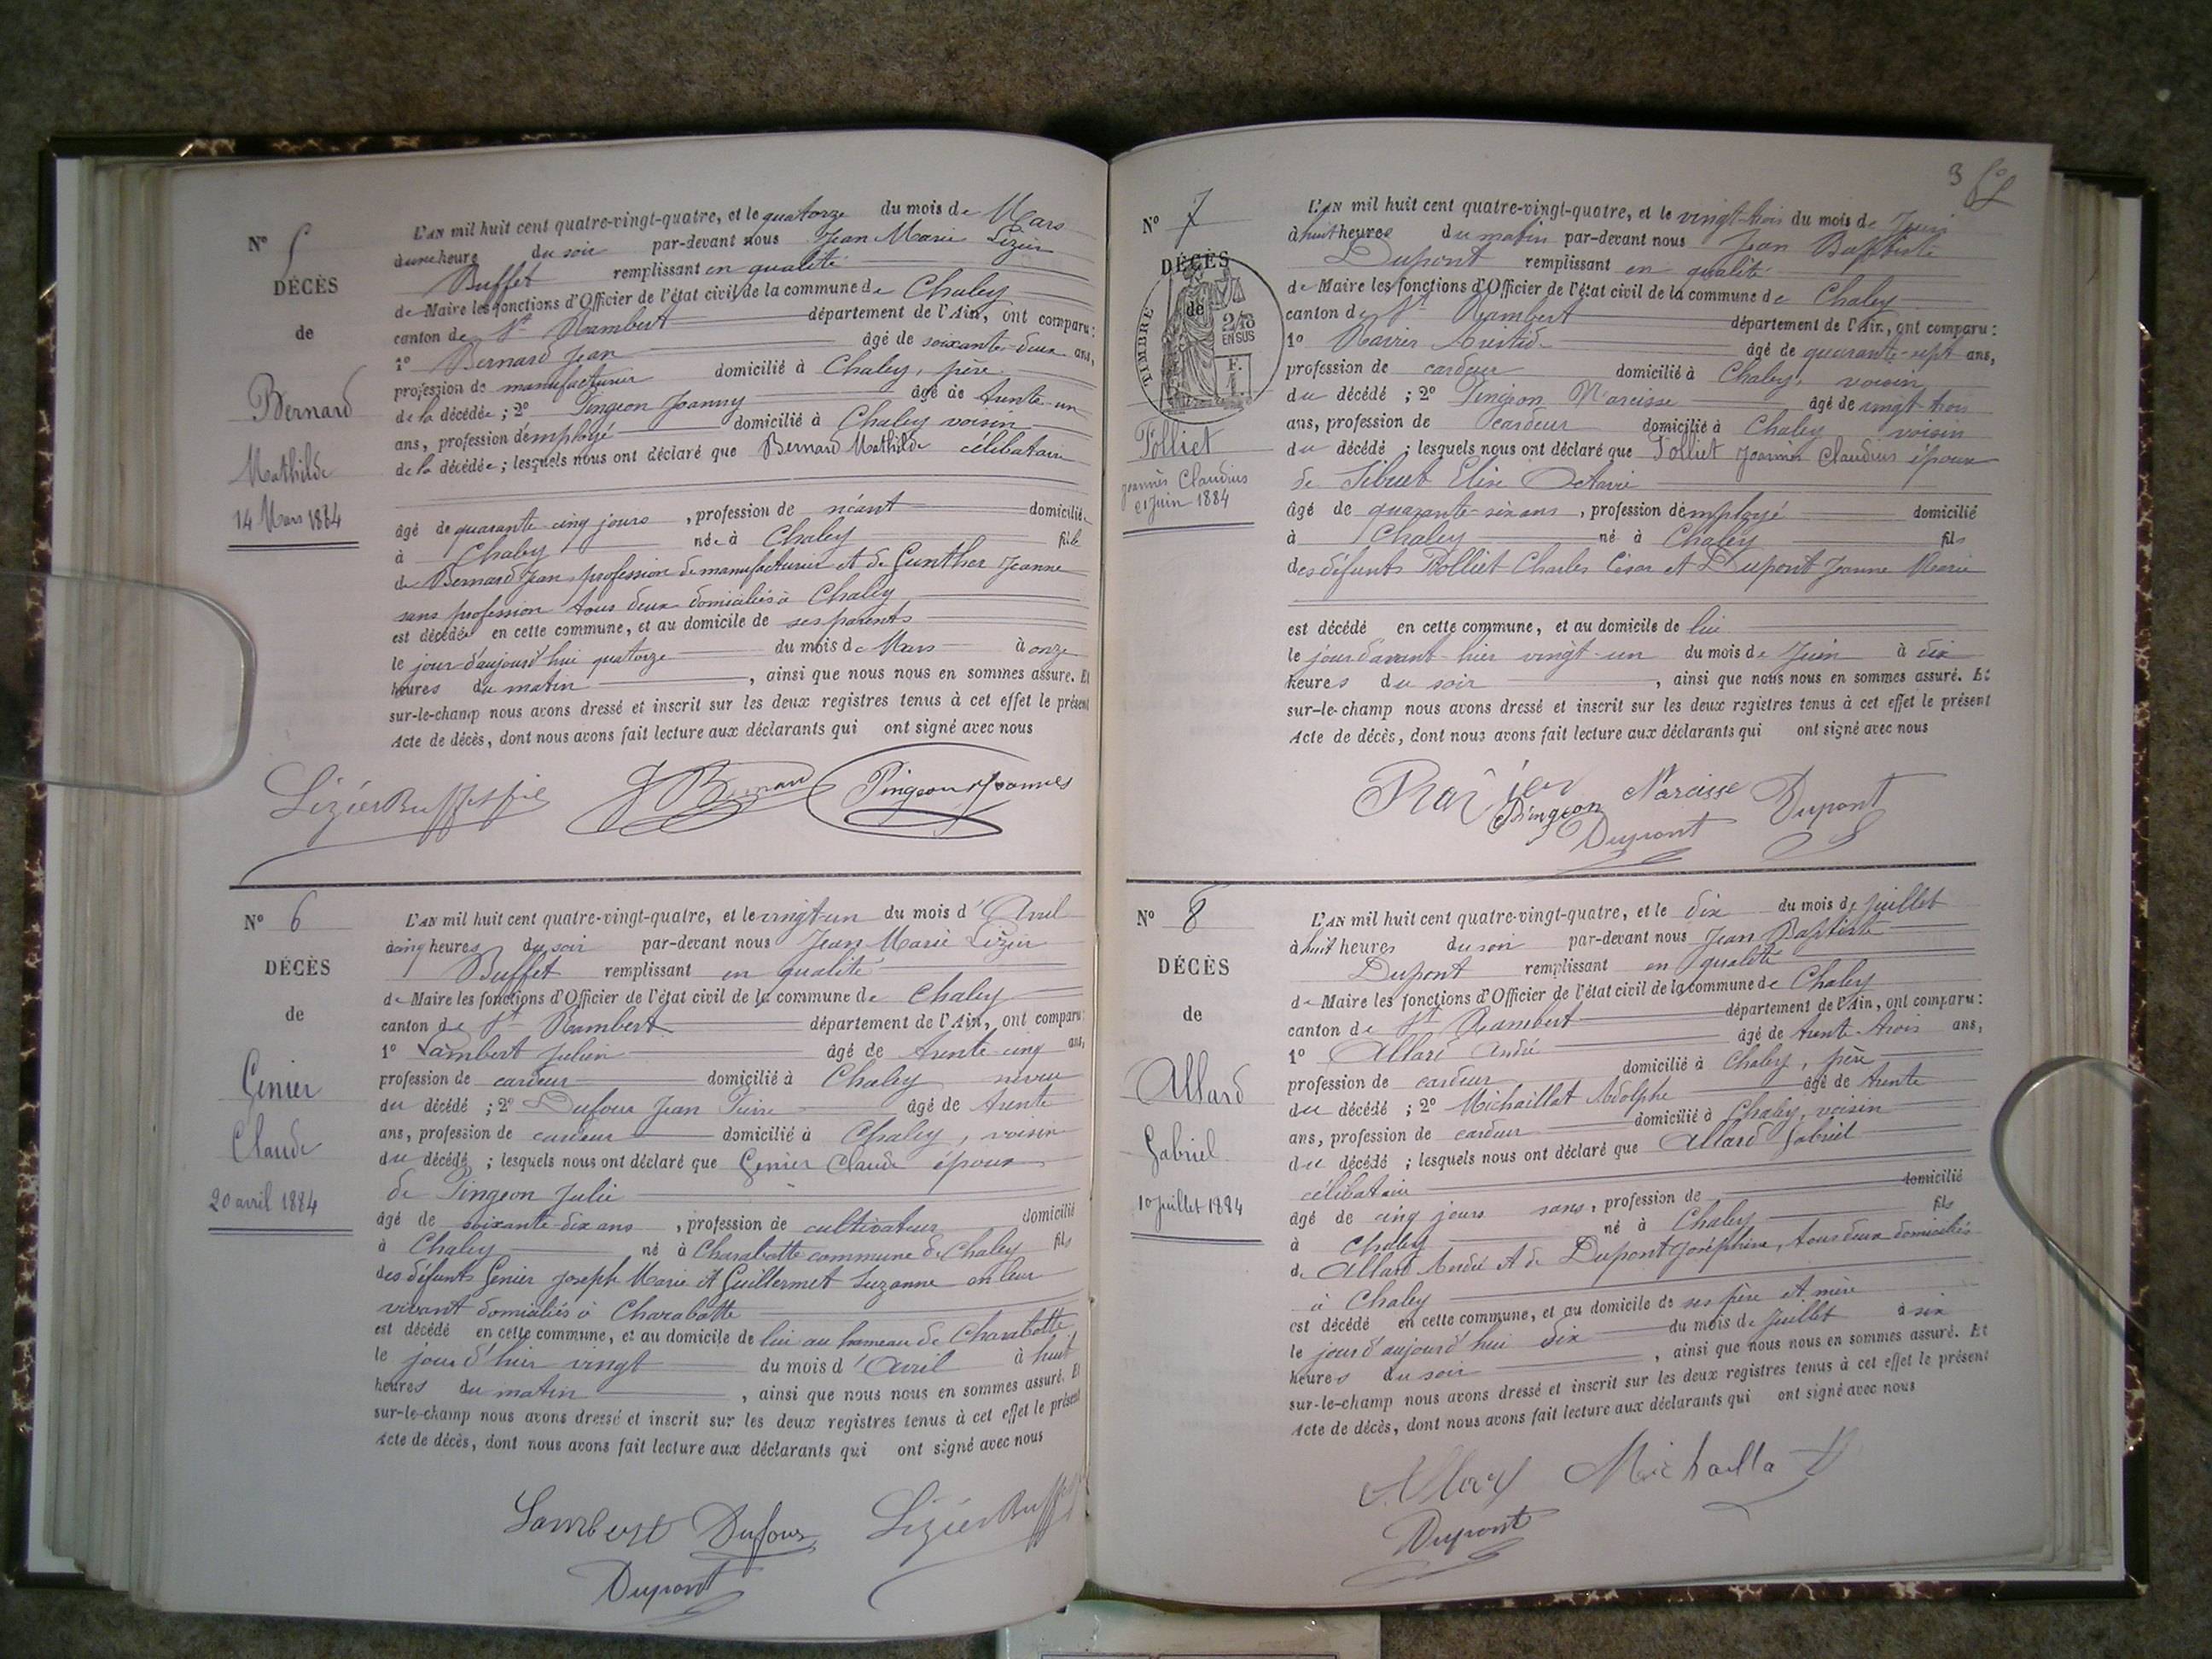 N° 5
DÉCÈS
de
Bernard
Mathilde
14 Mars 1884
L'AN mil huit cent quatre-vingt-quatre, et le quatorze du mois de Mars
à une heure du soir par-devant nous Jean Marie Lizier
Buffet remplissant en qualité
de Maire les fonctions d'Officier de l'état civil de la commune de Chaley
canton de St Rambert département de l'Ain, ont comparu:
1° Bernard Jean âgé de soixante-deux ans,
profession de manufacturier domicilié à Chaley, père
de la décédée; 2° Pingeon Joanny âgé de trente-un
ans, profession d'employé domicilié à Chaley voisin
de la décédée; lesquels nous ont déclaré que Bernard Mathilde célibataire
âgé de quarante cinq jours, profession de néant domiciliée
à Chaley née à Chaley fille
de Bernard Jean profession de manufacturier et de Gunther Jeanne
sans profession tous deux domiciliés à Chaley
est décédée en cette commune, et au domicile de ses parents
le jour d'aujourd'hui quatorze du mois de Mars à onze
heures du matin, ainsi que nous nous en sommes assuré. Et
sur-le-champ nous avons dressé et inscrit sur les deux registres tenus à cet effet le présent
Acte de décès, dont nous avons fait lecture aux déclarants qui ont signé avec nous
Lizier Buffet fils J Bernard Pingeon Joannes
N° 6
DÉCÈS
de
Genier
Claude
20 avril 1884
L'AN mil huit cent quatre-vingt-quatre, et le vingt-un du mois d'Avril
à cinq heures du soir par-devant nous Jean Marie Lizier
Buffet remplissant en qualité
de Maire les fonctions d'Officier de l'état civil de la commune de Chaley
canton de St Rambert département de l'Ain, ont comparu:
1° Lambert Julien âgé de trente-cinq ans,
profession de cardeur domicilié à Chaley neveu
du décédé; 2° Dufour Jean Pierre âgé de trente
ans, profession de cardeur domicilié à Chaley, voisin
du décédé; lesquels nous ont déclaré que Genier Claude époux
de Pingeon Julie
âgé de soixante-dix ans, profession de cultivateur domicilié
à Chaley né à Charabotte commune de Chaley fils
des défunts Genier Joseph Marie et Guillermet Suzanne en leur
vivant domiciliés à Charabotte
est décédé en cette commune, et au domicile de lui au hameau de Charabotte
le jour d'hier vingt du mois d'Avril à huit
heures du matin, ainsi que nous nous en sommes assuré. Et
sur-le-champ nous avons dressé et inscrit sur les deux registres tenus à cet effet le présent
Acte de décès, dont nous avons fait lecture aux déclarants qui ont signé avec nous
Lambert Dufour Lizier Buffet
Dupont
3
N° 7
DÉCÈS
de
TIMBRE
2/10
EN SUS
F.
1
Tolliet
Joannès Claudius
21 Juin 1884
L'AN mil huit cent quatre-vingt-quatre, et le vingt-trois du mois de Juin
à huit heures du matin par-devant nous Jean Baptiste
Dupont remplissant en qualité
de Maire les fonctions d'Officier de l'état civil de la commune de Chaley
canton de St Rambert département de l'Ain, ont comparu:
1° Ravier Aristide âgé de quarante-sept ans,
profession de cardeur domicilié à Chaley, voisin
du décédé; 2° Pingeon Narcisse âgé de vingt-trois
ans, profession de cardeur domicilié à Chaley voisin
du décédé; lesquels nous ont déclaré que Tolliet Joannès Claudius époux
de Sibuet Elise Octavie
âgé de quarante-six ans, profession d'employé domicilié
à Chaley né à Chaley fils
des défunts Tolliet Charles César et Dupont Jeanne Marie
est décédé en cette commune, et au domicile de lui
le jour d'avant-hier vingt-un du mois de Juin à dix
heures du soir, ainsi que nous nous en sommes assuré. Et
sur-le-champ nous avons dressé et inscrit sur les deux registres tenus à cet effet le présent
Acte de décès, dont nous avons fait lecture aux déclarants qui ont signé avec nous
Ravier Pingeon Narcisse Dupont
Dupont
N° 8
DÉCÈS
de
Allard
Gabriel
10 juillet 1884
L'AN mil huit cent quatre-vingt-quatre, et le dix du mois de juillet
à huit heures du soir par-devant nous Jean Baptiste
Dupont remplissant en qualité
de Maire les fonctions d'Officier de l'état civil de la commune de Chaley
canton de St Rambert département de l'Ain, ont comparu:
1° Allard André âgé de trente-trois ans,
profession de cardeur domicilié à Chaley, père
du décédé; 2° Michaillat Adolphe âgé de trente
ans, profession de cardeur domicilié à Chaley, voisin
du décédé; lesquels nous ont déclaré que Allard Gabriel
célibataire
âgé de cinq jours sans, profession de domicilié
à Chaley né à Chaley fils
de Allard André et de Dupont Joséphine, tous deux domiciliés
à Chaley
est décédé en cette commune, et au domicile de ses père et mère
le jour d'aujourd'hui dix du mois de Juillet à six
heures du soir, ainsi que nous nous en sommes assuré. Et
sur-le-champ nous avons dressé et inscrit sur les deux registres tenus à cet effet le présent
Acte de décès, dont nous avons fait lecture aux déclarants qui ont signé avec nous
Allard Michaillat
Dupont